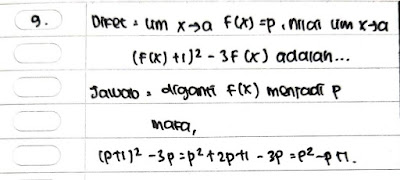 9. Diket : lim x→a f(x)=p, nilai lim x→a
(f(x)+1)2 - 3f(x) adalah...
Jawab : diganti f(x) menjadi p
maka,
(p+1)² -3p = p² + 2p+1 - 3p = p² - p +1.